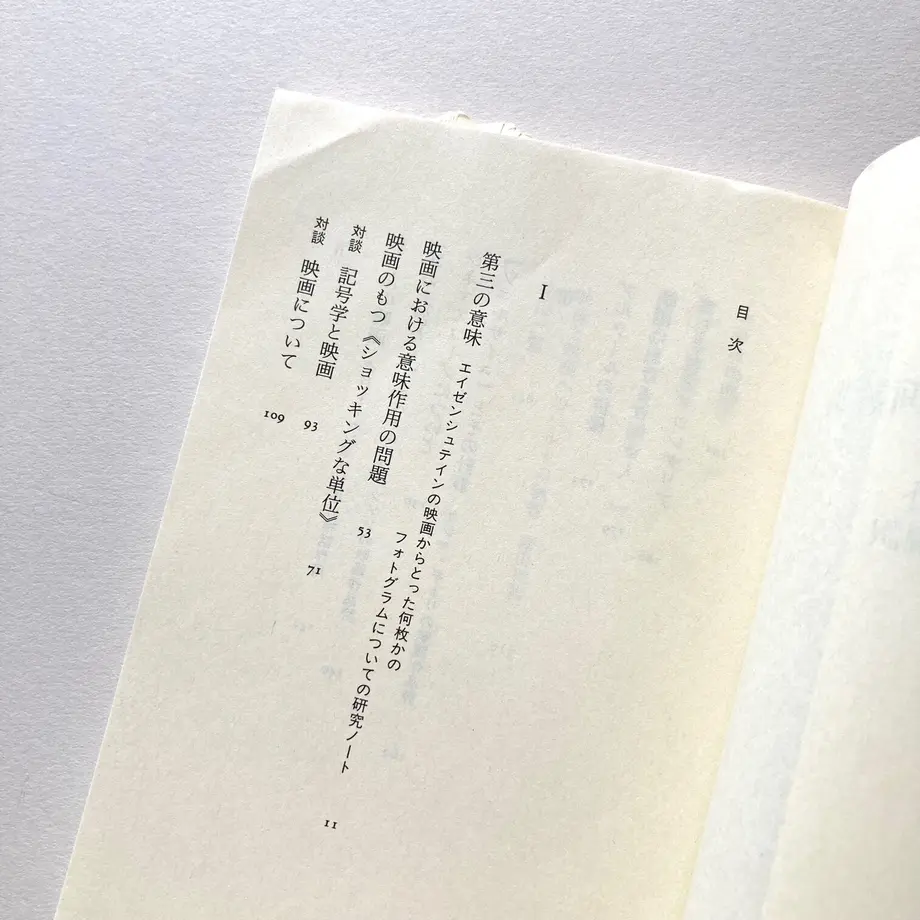 目次
I
第三の意味 エイゼンシュテインの映画からとった何枚かの
フォトグラムについての研究ノート 11
映画における意味作用の問題 53
映画のもつ《ショッキングな単位》 71
対談 記号学と映画 93
対談 映画について 109